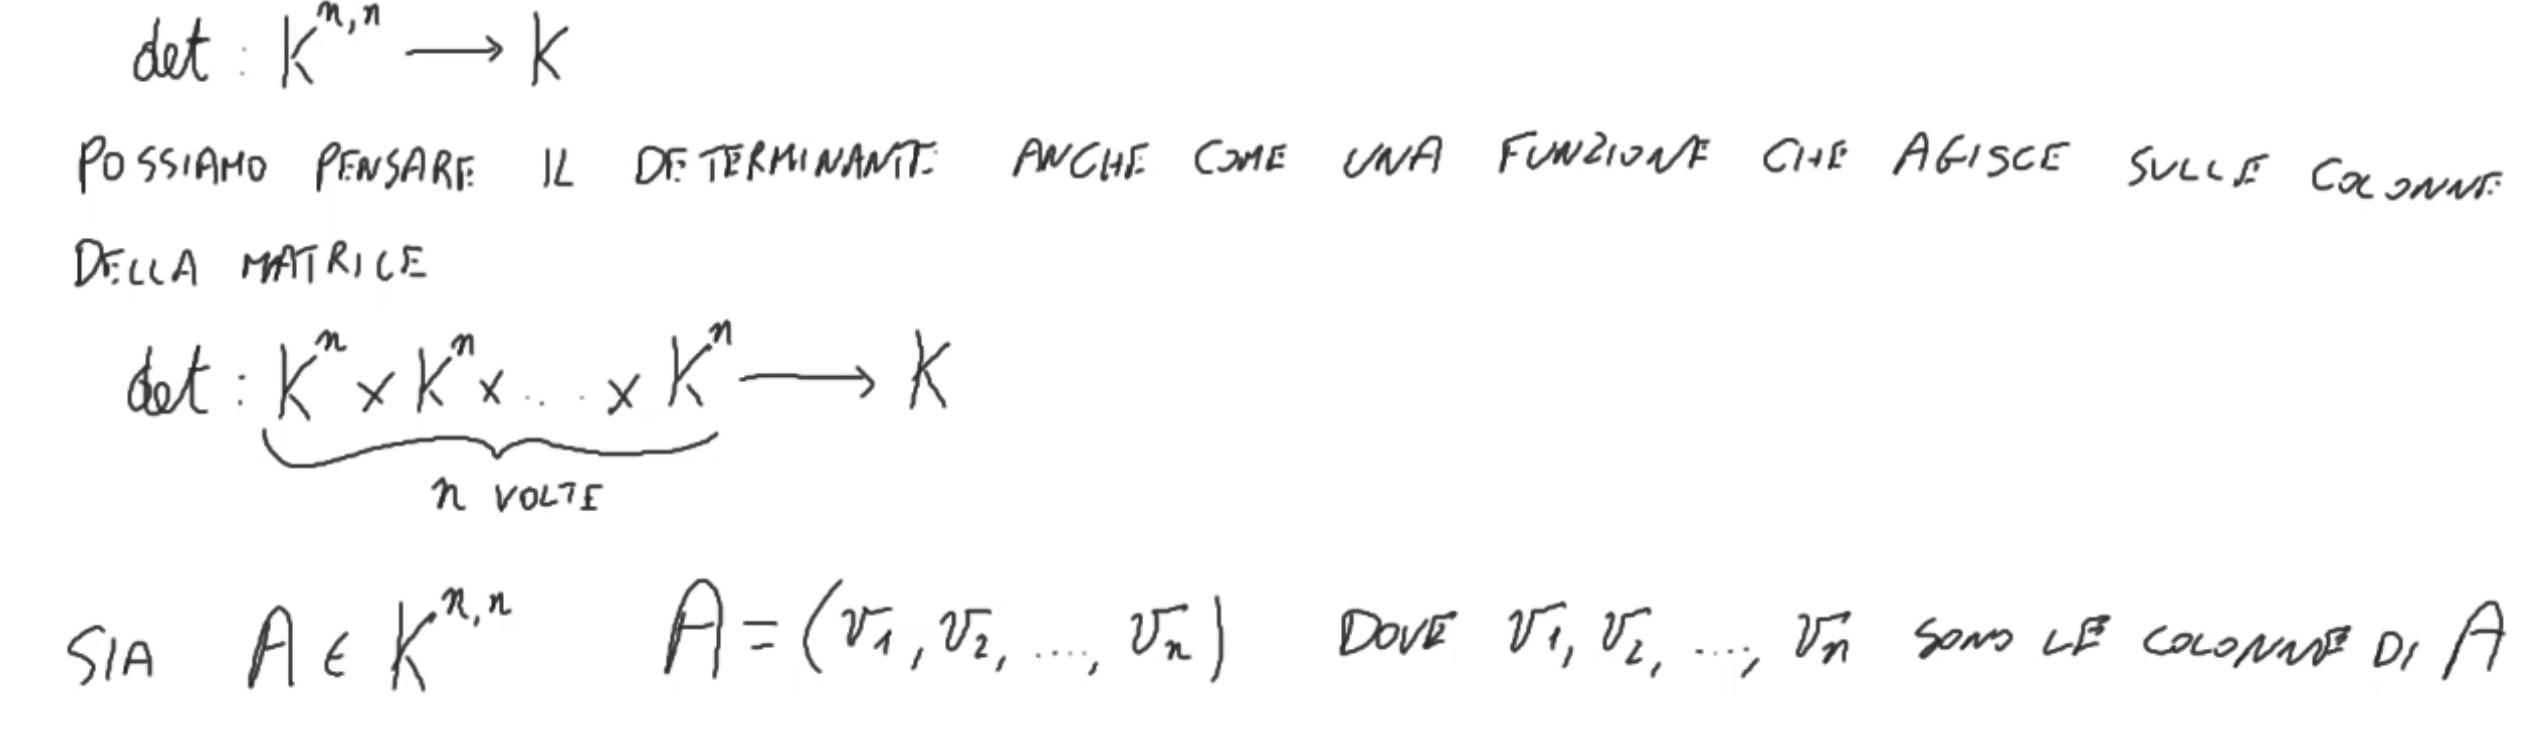 det : K^{n,n} ⟶ K
POSSIAMO PENSARE IL DETERMINANTE ANCHE COME UNA FUNZIONE CHE AGISCE SULLE COLONNE
DELLA MATRICE
det : K^n × K^n × ... × K^n ⟶ K
n VOLTE
SIA A ∈ K^{n,n} A = (v_1, v_2, ..., v_n) DOVE v_1, v_2, ..., v_n SONO LE COLONNE DI A